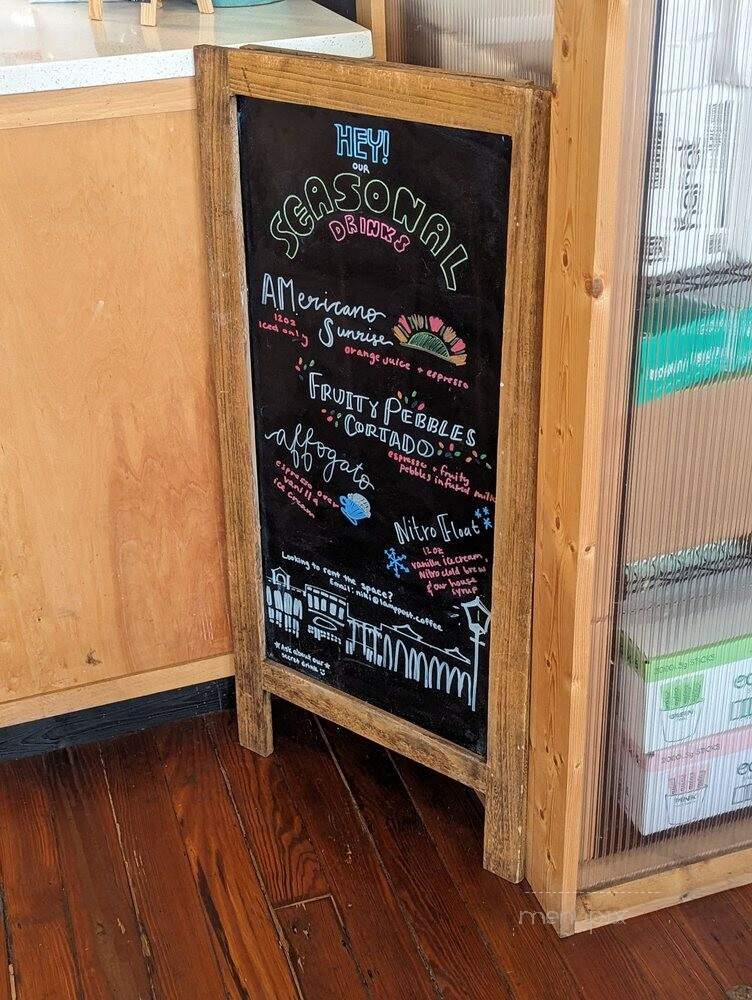 HEY!
OUR
SEASONAL
DRINKS
AMericano
Sunrise
12oz
iced only
orange juice + espresso
FRUITY PEBBLES
CORTADO
espresso + fruity
pebbles infused milk
affogato
espresso over
vanilla
ice cream
Nitro Float
12oz
vanilla ice cream,
Nitro cold brew
& our house
syrup
Looking to rent the space?
Email: niki@lamppost.coffee
*Ask about our*
secret drink
karat
menupix